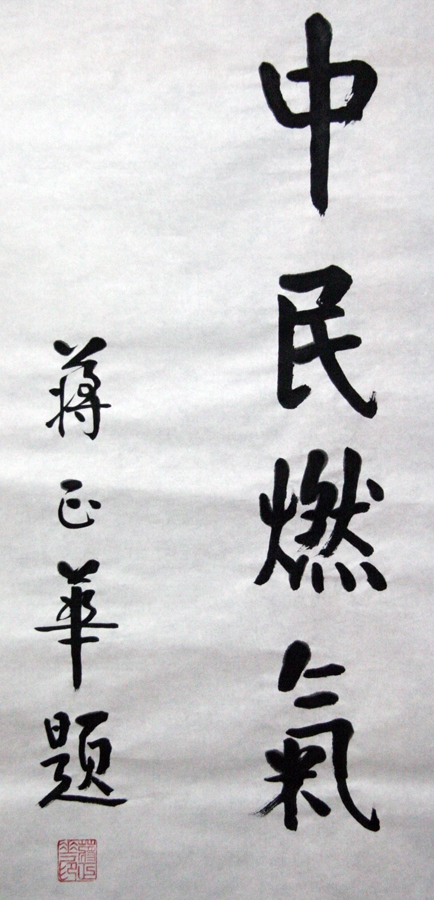 中民燃氣
蒋正華题